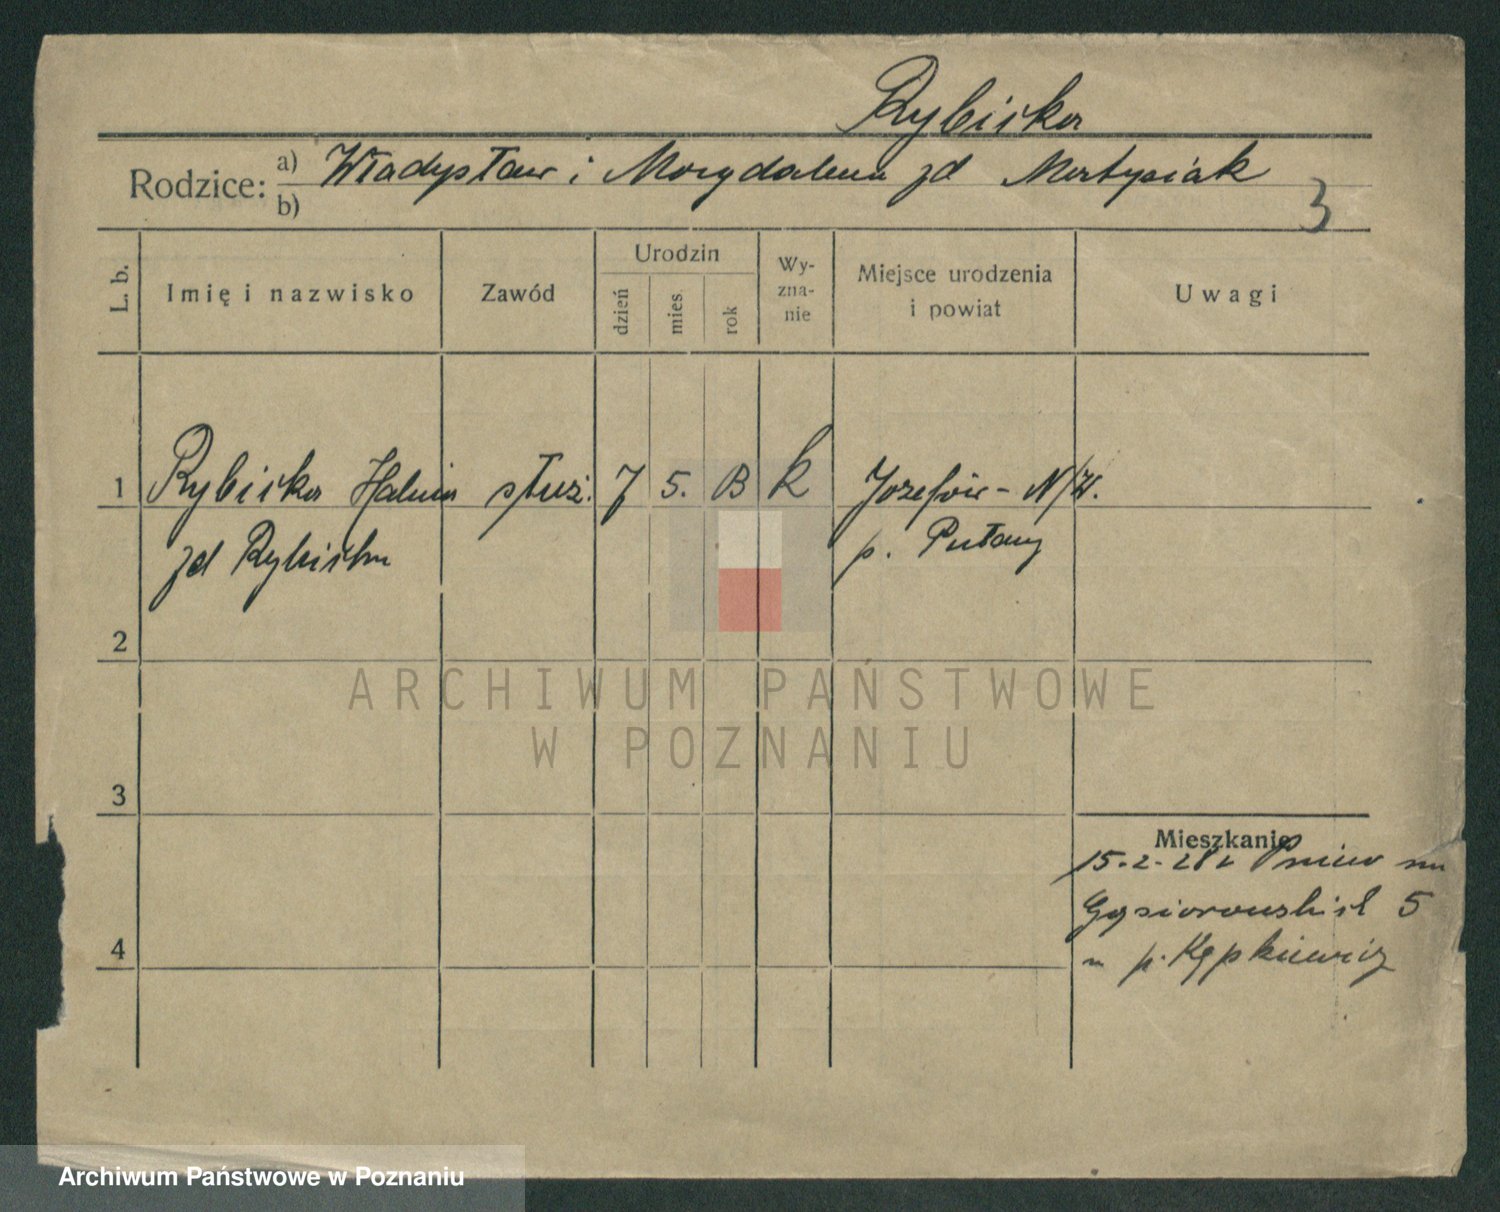 Rybicka
Rodzice: a) Władysław i Magdalena zd Matysiak
b)
3
L. b.
Imię i nazwisko
Zawód
Urodzin
dzień
mies
rok
Wy-
zna-
nie
Miejsce urodzenia
i powiat
Uwagi
1 Rybicka Halina służ. 7 5. k Józefów - N/W.
zd Rybicka p. Puławy
2
3
4
Mieszkanie
15.2.28 z Pniew na
Gąsiorowskich 5
u p. Kępkiewicz
ARCHIWUM PAŃSTWOWE
W POZNANIU
Archiwum Państwowe w Poznaniu